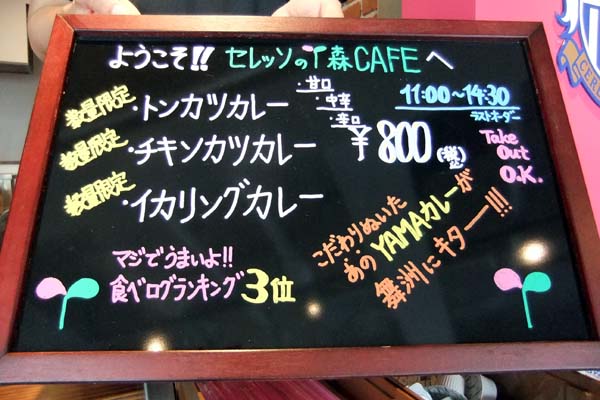 ようこそ!! セレッソの森CAFEへ
数量限定 ・トンカツカレー
数量限定 ・チキンカツカレー
数量限定 ・イカリングカレー
甘口
中辛
辛口
¥800(税込)
11:00〜14:30
ラストオーダー
Take
Out
O.K.
マジでうまいよ!!
食べログランキング3位
こだわりぬいた
あのYAMAカレーが
舞洲にキター!!!
CERE